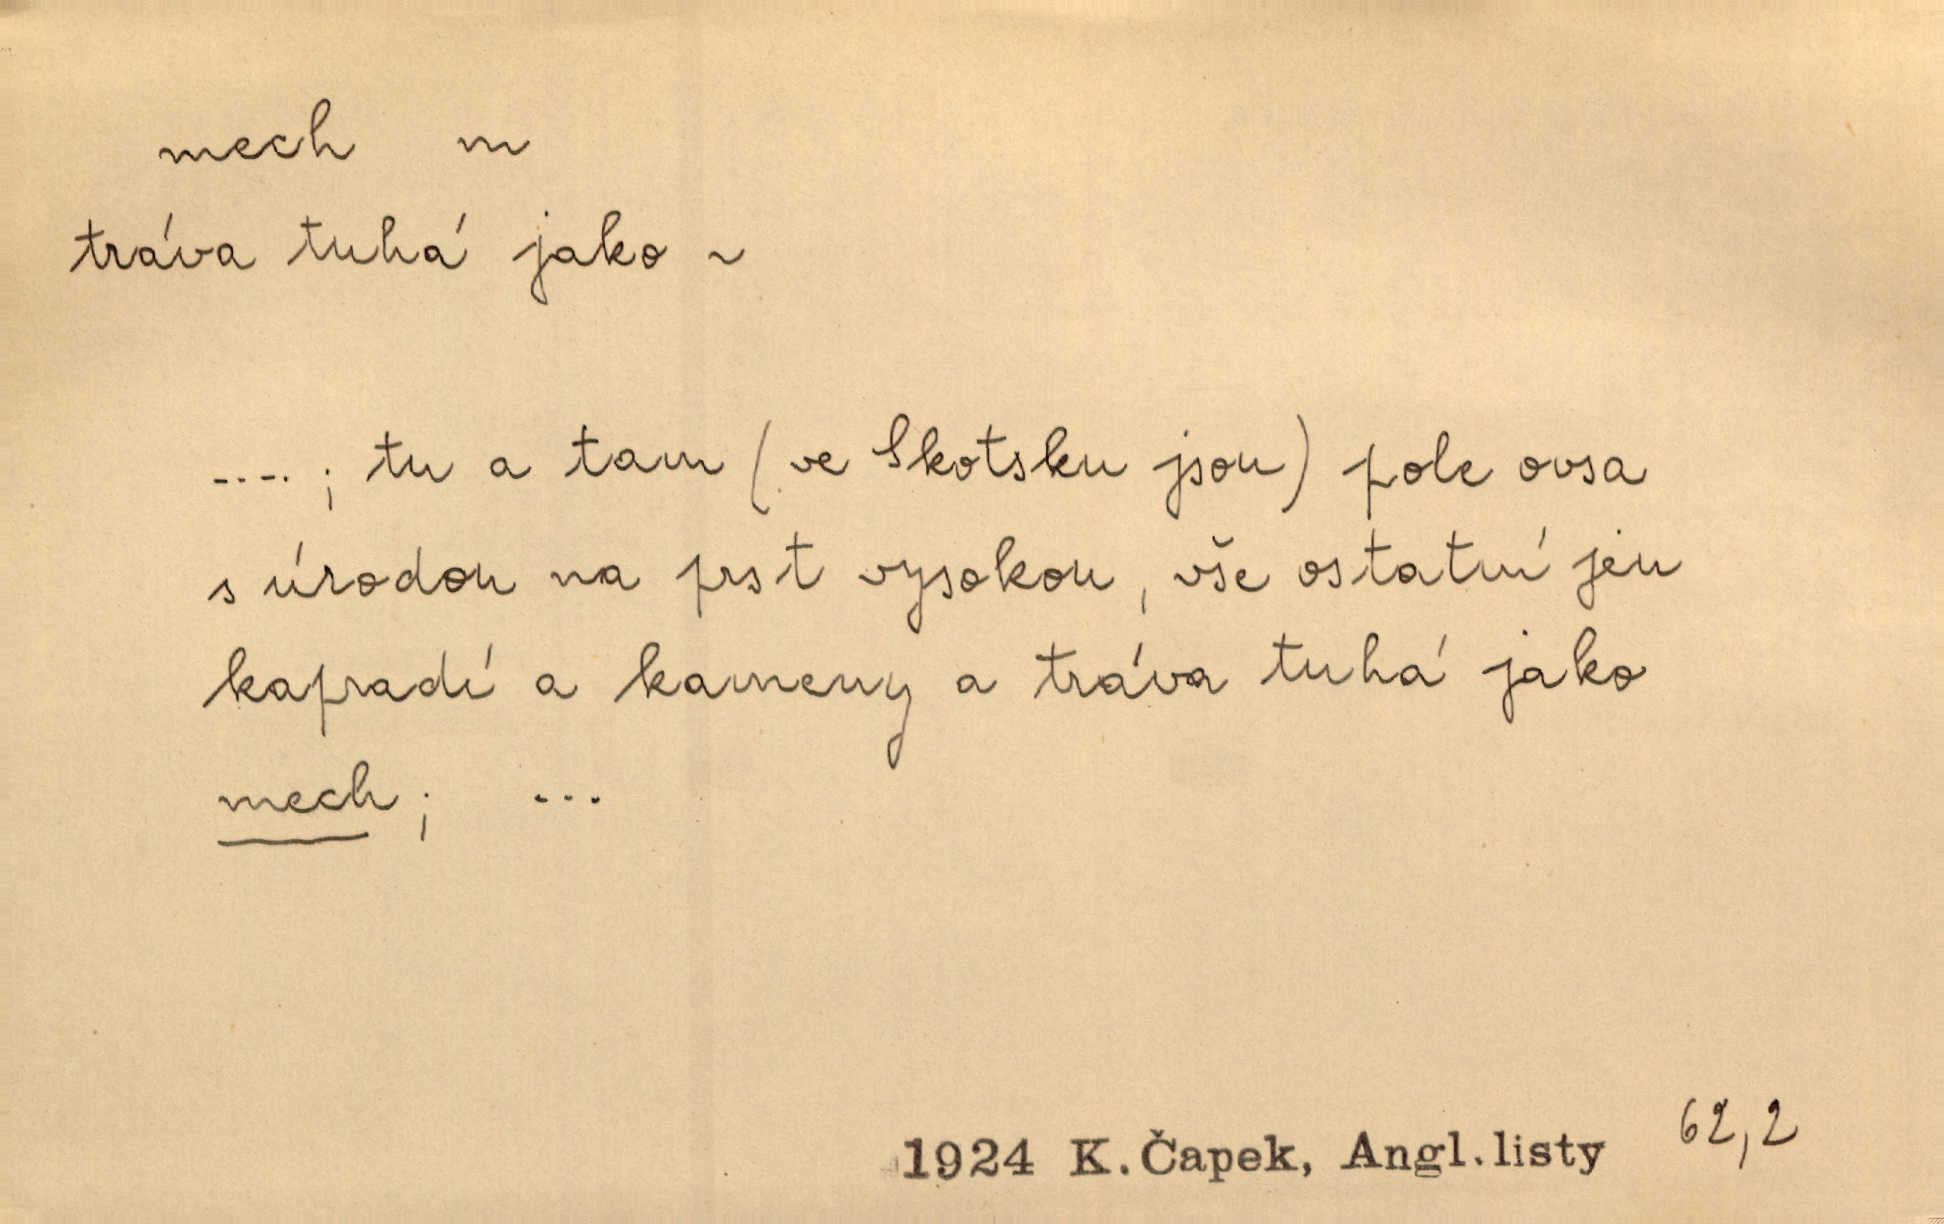 mech m
tráva tuhá jako ~
....; tu a tam (ve Skotsku jsou) pole ovsa
s úrodou na prst vysokou, vše ostatní jen
kapradí a kameny a tráva tuhá jako
mech; ...
1924 K.Čapek, Angl.listy 62,2